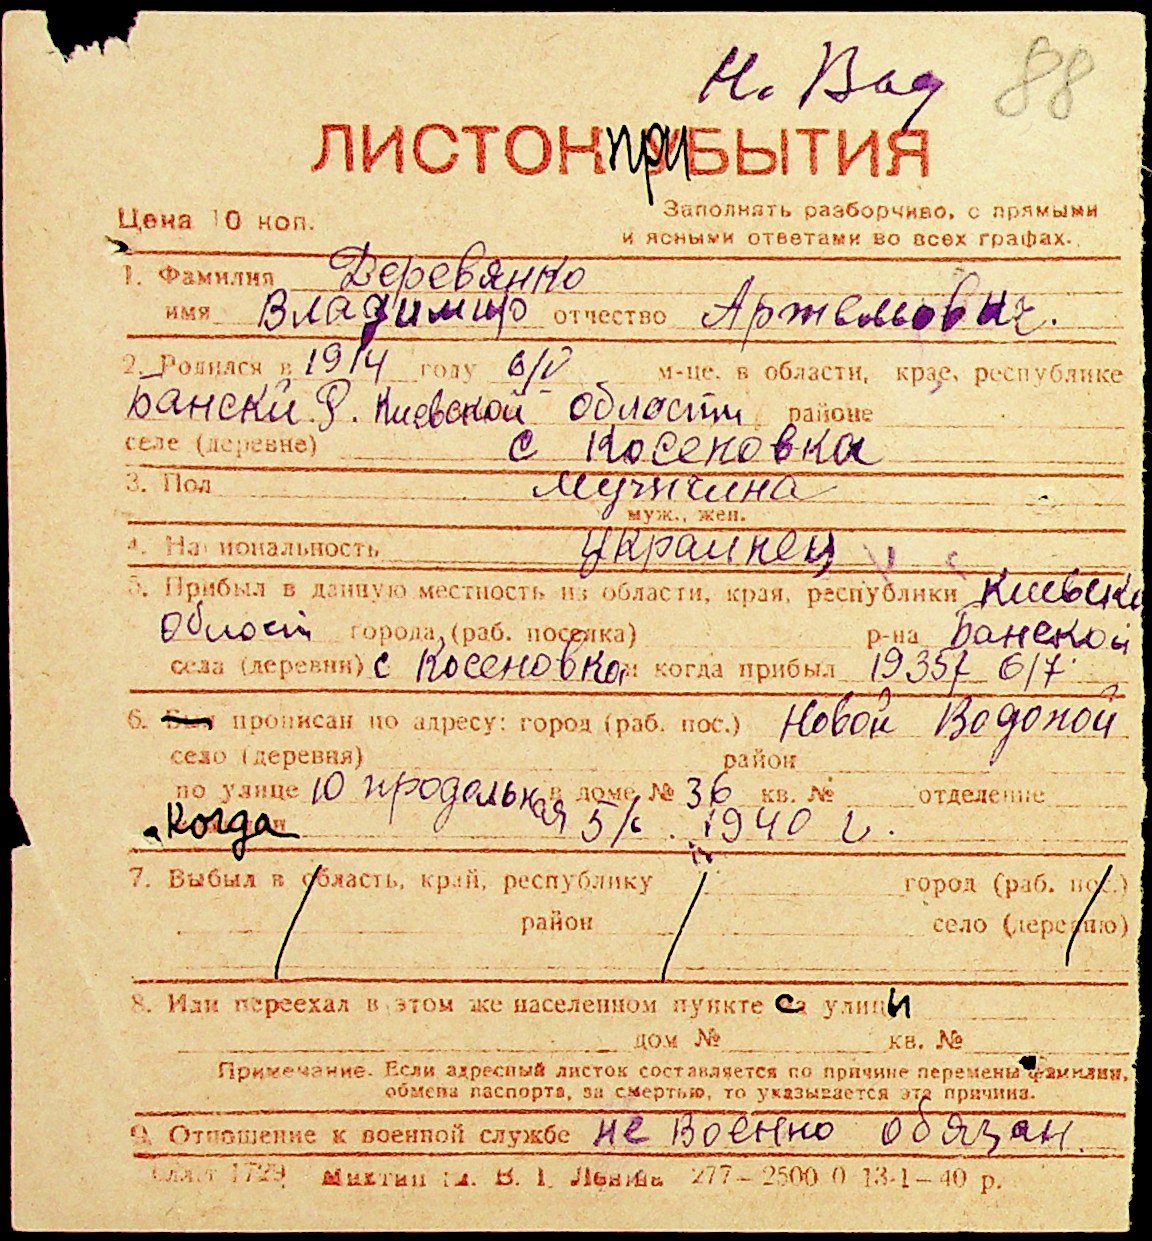 Н. Вод 88
ЛИСТОК при БЫТИЯ
Цена 10 коп.
Заполнять разборчиво, с прямыми
и ясными ответами во всех графах.
1. Фамилия Деревянко
имя Владимир отчество Артемович.
2. Родился в 1914 году 6/V м-це. в области, крае, республике
Банский Р. Киевской области районе
селе (деревне) с Косеновка
3. Пол мучичина
муж., жен.
4. Национальность украинец
5. Прибыл в данную местность из области, края, республики Киевско
област города (раб. поселка) р-на Банской
села (деревни) с Косеновка и когда прибыл 1935г 6/7
6. прописан по адресу: город (раб. пос.) Новой Водопой
село (деревня) район
по улице 10 продольная в доме № 36 кв. № отделение
Когда 5/х . 1940 г.
7. Выбыл в область, край, республику город (раб. пос.)
район село (деревню)
8. Или переехал в этом же населенном пункте с улици
дом № кв. №
Примечание. Если адресный листок составляется по причине перемены фамилии,
обмена паспорта, за смертью, то указывается эта причина.
9. Отношение к военной службе не военно обязан
1729 В. І. Леніна 277—2500 0 13-1—40 р.